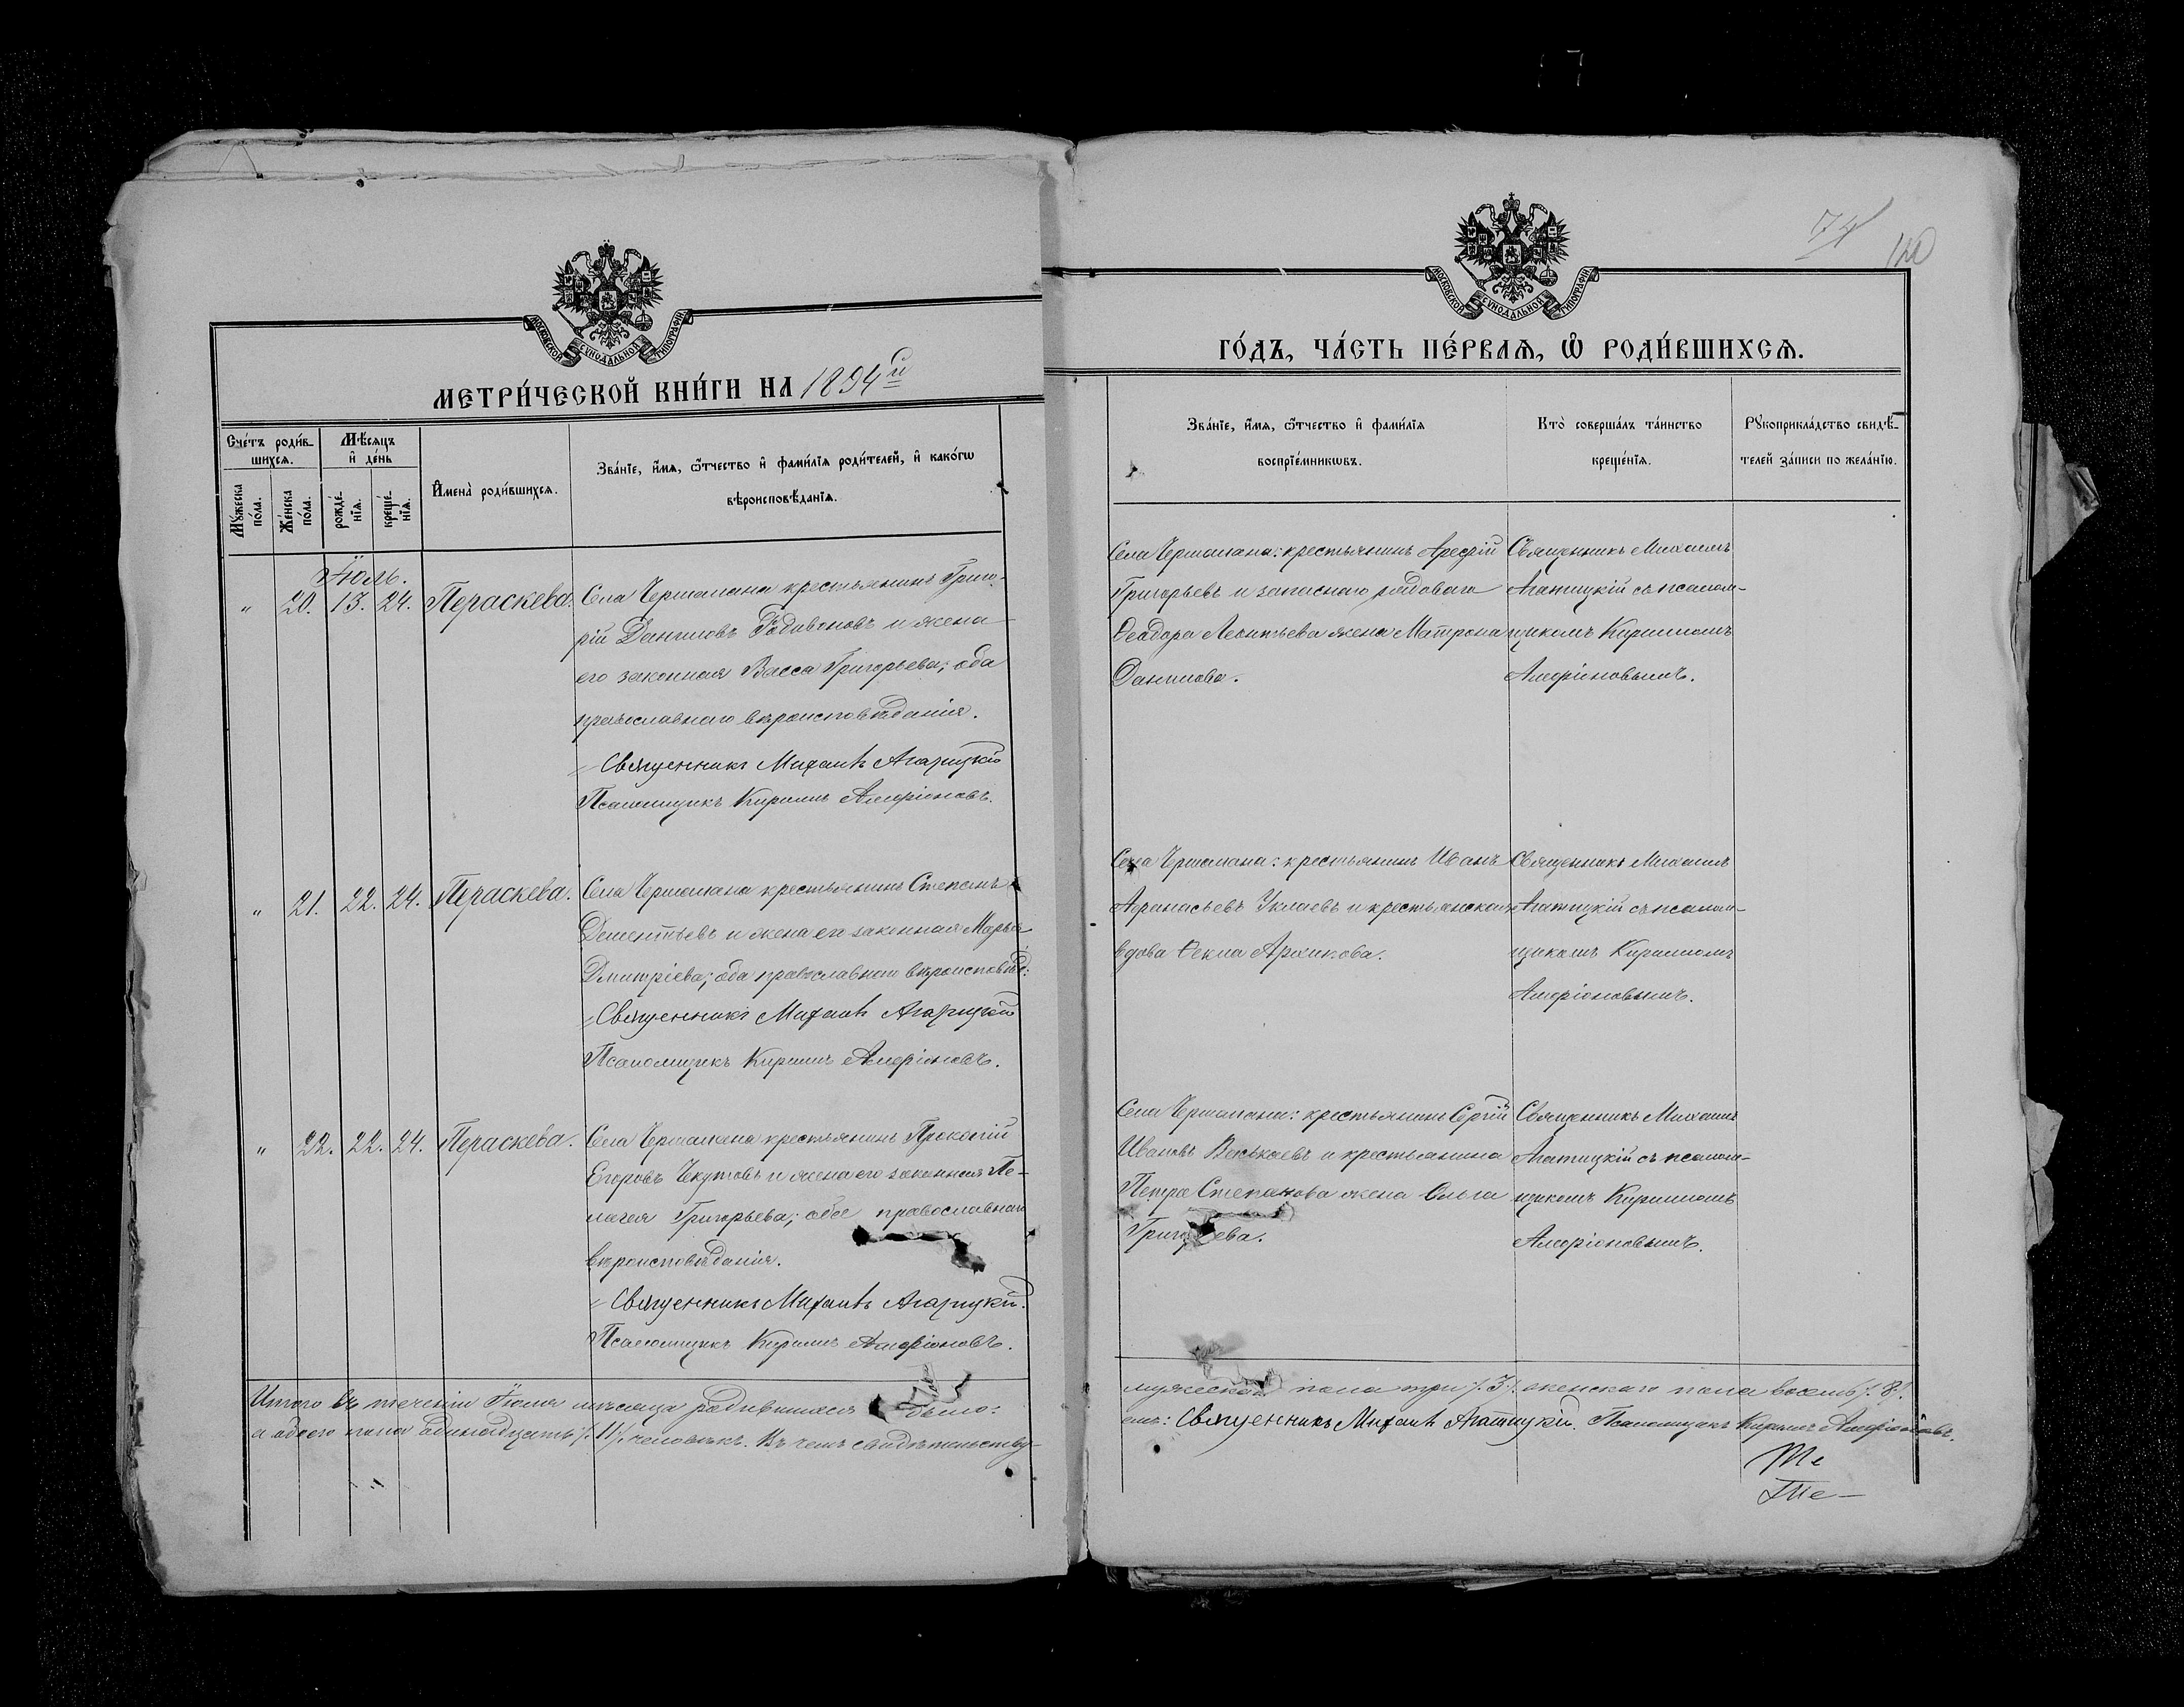 МОСКОВСКОЙ СѴНОДАЛЬНОЙ ТИПОГРАФІИ
МЕТРИ́ЧЕСКОЙ КНИ́ГИ НА 1894й
Сче́тъ роди́в-
шихсѧ.
Мѣ́сѧцъ
и҆ де́нь
Мꙋ́жеска
по́ла.
Же́нска
по́ла.
рожде́-
нїѧ.
креще́-
нїѧ.
И҆мена̀ роди́вшихсѧ.
Зва́нїе, и҆́мѧ, ѻ҆́тчество и҆ фами́лїѧ роди́телей, и҆ како́гѡ
вѣроисповѣ́данїѧ.
Іюль.
" 20. 13. 24. Пераскева. Села Чермалана крестьянинъ Григо-
рій Даниловъ Родивоновъ и жена
его законная Васса Григорьева; оба
православнаго вѣроисповѣданія.
Священникъ Михаилъ Агатицкій
Псаломщикъ Кириллъ Алфіоновъ.
" 21. 22. 24. Пераскева. Села Чермалана крестьянинъ Степанъ
Дементьевъ и жена его законная Марья
Дмитріева; оба православнаго вѣроисповѣд:
Священникъ Михаилъ Агатицкій
Псаломщикъ Кириллъ Алфіоновъ.
" 22. 22. 24. Пераскева. Села Чермалана крестьянинъ Прокопій
Егоровъ Чекутовъ и жена его законная Пе-
лагея Григорьева; обе православнаго
вѣроисповѣданія.
Священникъ Михаилъ Агатицкій.
Псаломщикъ Кириллъ Алфіоновъ.
Итого въ теченіи Іюля мѣсяца родившихся было:
а обоего пола одинадцать /.11/. человѣкъ. Въ чемъ свидѣтельству-
74
120
МОСКОВСКОЙ СѴНОДАЛЬНОЙ ТИПОГРАФІИ
ГО́ДЪ, ЧА́СТЬ ПЕ́РВАѦ, Ѡ҆ РОДИ́ВШИХСѦ.
Зва́нїе, и҆́мѧ, ѻ҆́тчество и҆ фами́лїѧ
воспрїе́мникѡвъ.
Кто̀ соверша́лъ та́инство
креще́нїѧ.
Рꙋкоприкла́дство свидѣ́-
телей за́писи по жела́нїю.
Села Чермалана: крестьянинъ Арефій
Григорьевъ и запаснаго рядоваго
Ѳеодора Леонтьева жена Матрона
Данилова.
Священникъ Михаилъ
Агатицкій съ псалом-
щикомъ Кирилломъ
Алфіоновымъ.
Села Чермалана: крестьянинъ Иванъ
Афанасьевъ Уклаевъ и крестьянская
вдова Ѳекла Архипова.
Священникъ Михаилъ
Агатицкій съ псалом-
щикомъ Кирилломъ
Алфіоновымъ.
Села Чермалана: крестьянинъ Сергій
Ивановъ Васькаевъ и крестьянина
Петра Степанова жена Ольга
Григорьева.
Священникъ Михаилъ
Агатицкій съ псалом-
щикомъ Кирилломъ
Алфіоновымъ.
мужескаго пола три /.3/. женскаго пола восемь /.8/.
емъ: Священникъ Михаилъ Агатицкій. Псаломщикъ Кириллъ Алфіоновъ.